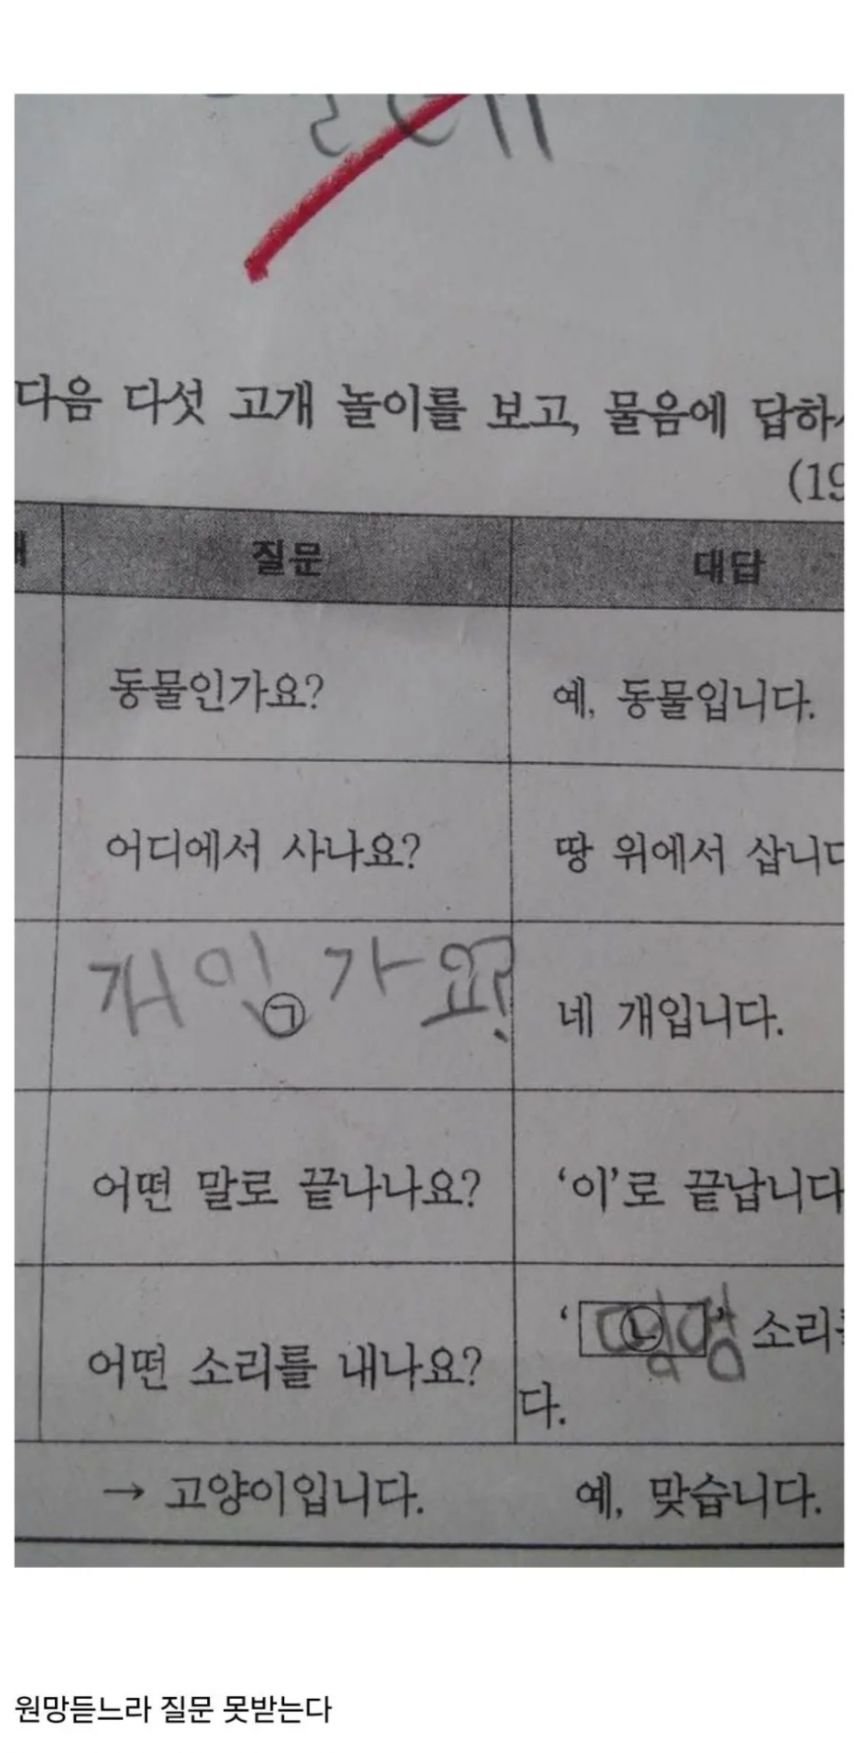 다음 다섯 고개 놀이를 보고, 물음에 답하
(19
질문 대답
동물인가요? 예, 동물입니다.
어디에서 사나요? 땅 위에서 삽니다
개인가요? ㉠ 네 개입니다.
어떤 말로 끝나나요? '이'로 끝납니다
어떤 소리를 내나요? '㉡' 소리를
다.
→ 고양이입니다. 예, 맞습니다.
원망듣느라 질문 못받는다